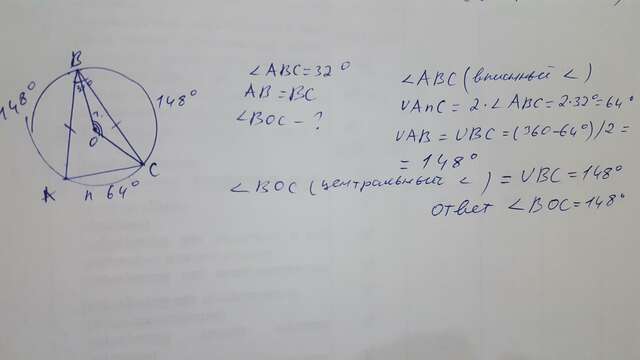 B
148°
148°
?
O
A
n 64°
C
∠ABC=32°
AB=BC
∠BOC - ?
∠ABC (вписный ∠)
∪AnC = 2·∠ABC=2·32°=64°
∪AB = ∪BC = (360-64°)/2 =
= 148°
∠BOC (центральный ∠) = ∪BC = 148°
ответ ∠BOC=148°